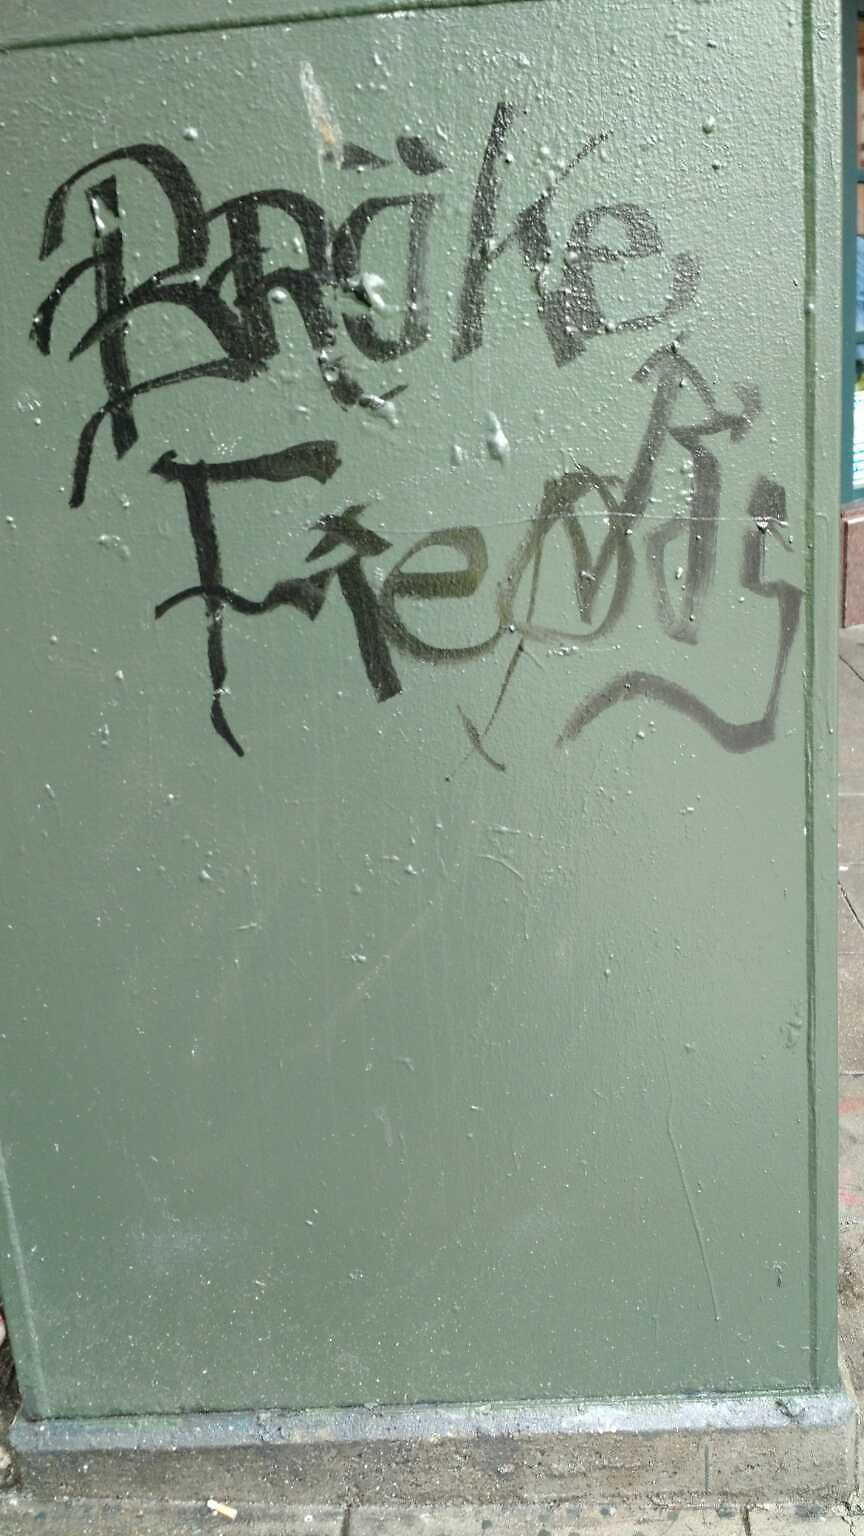 Broke
Fiends